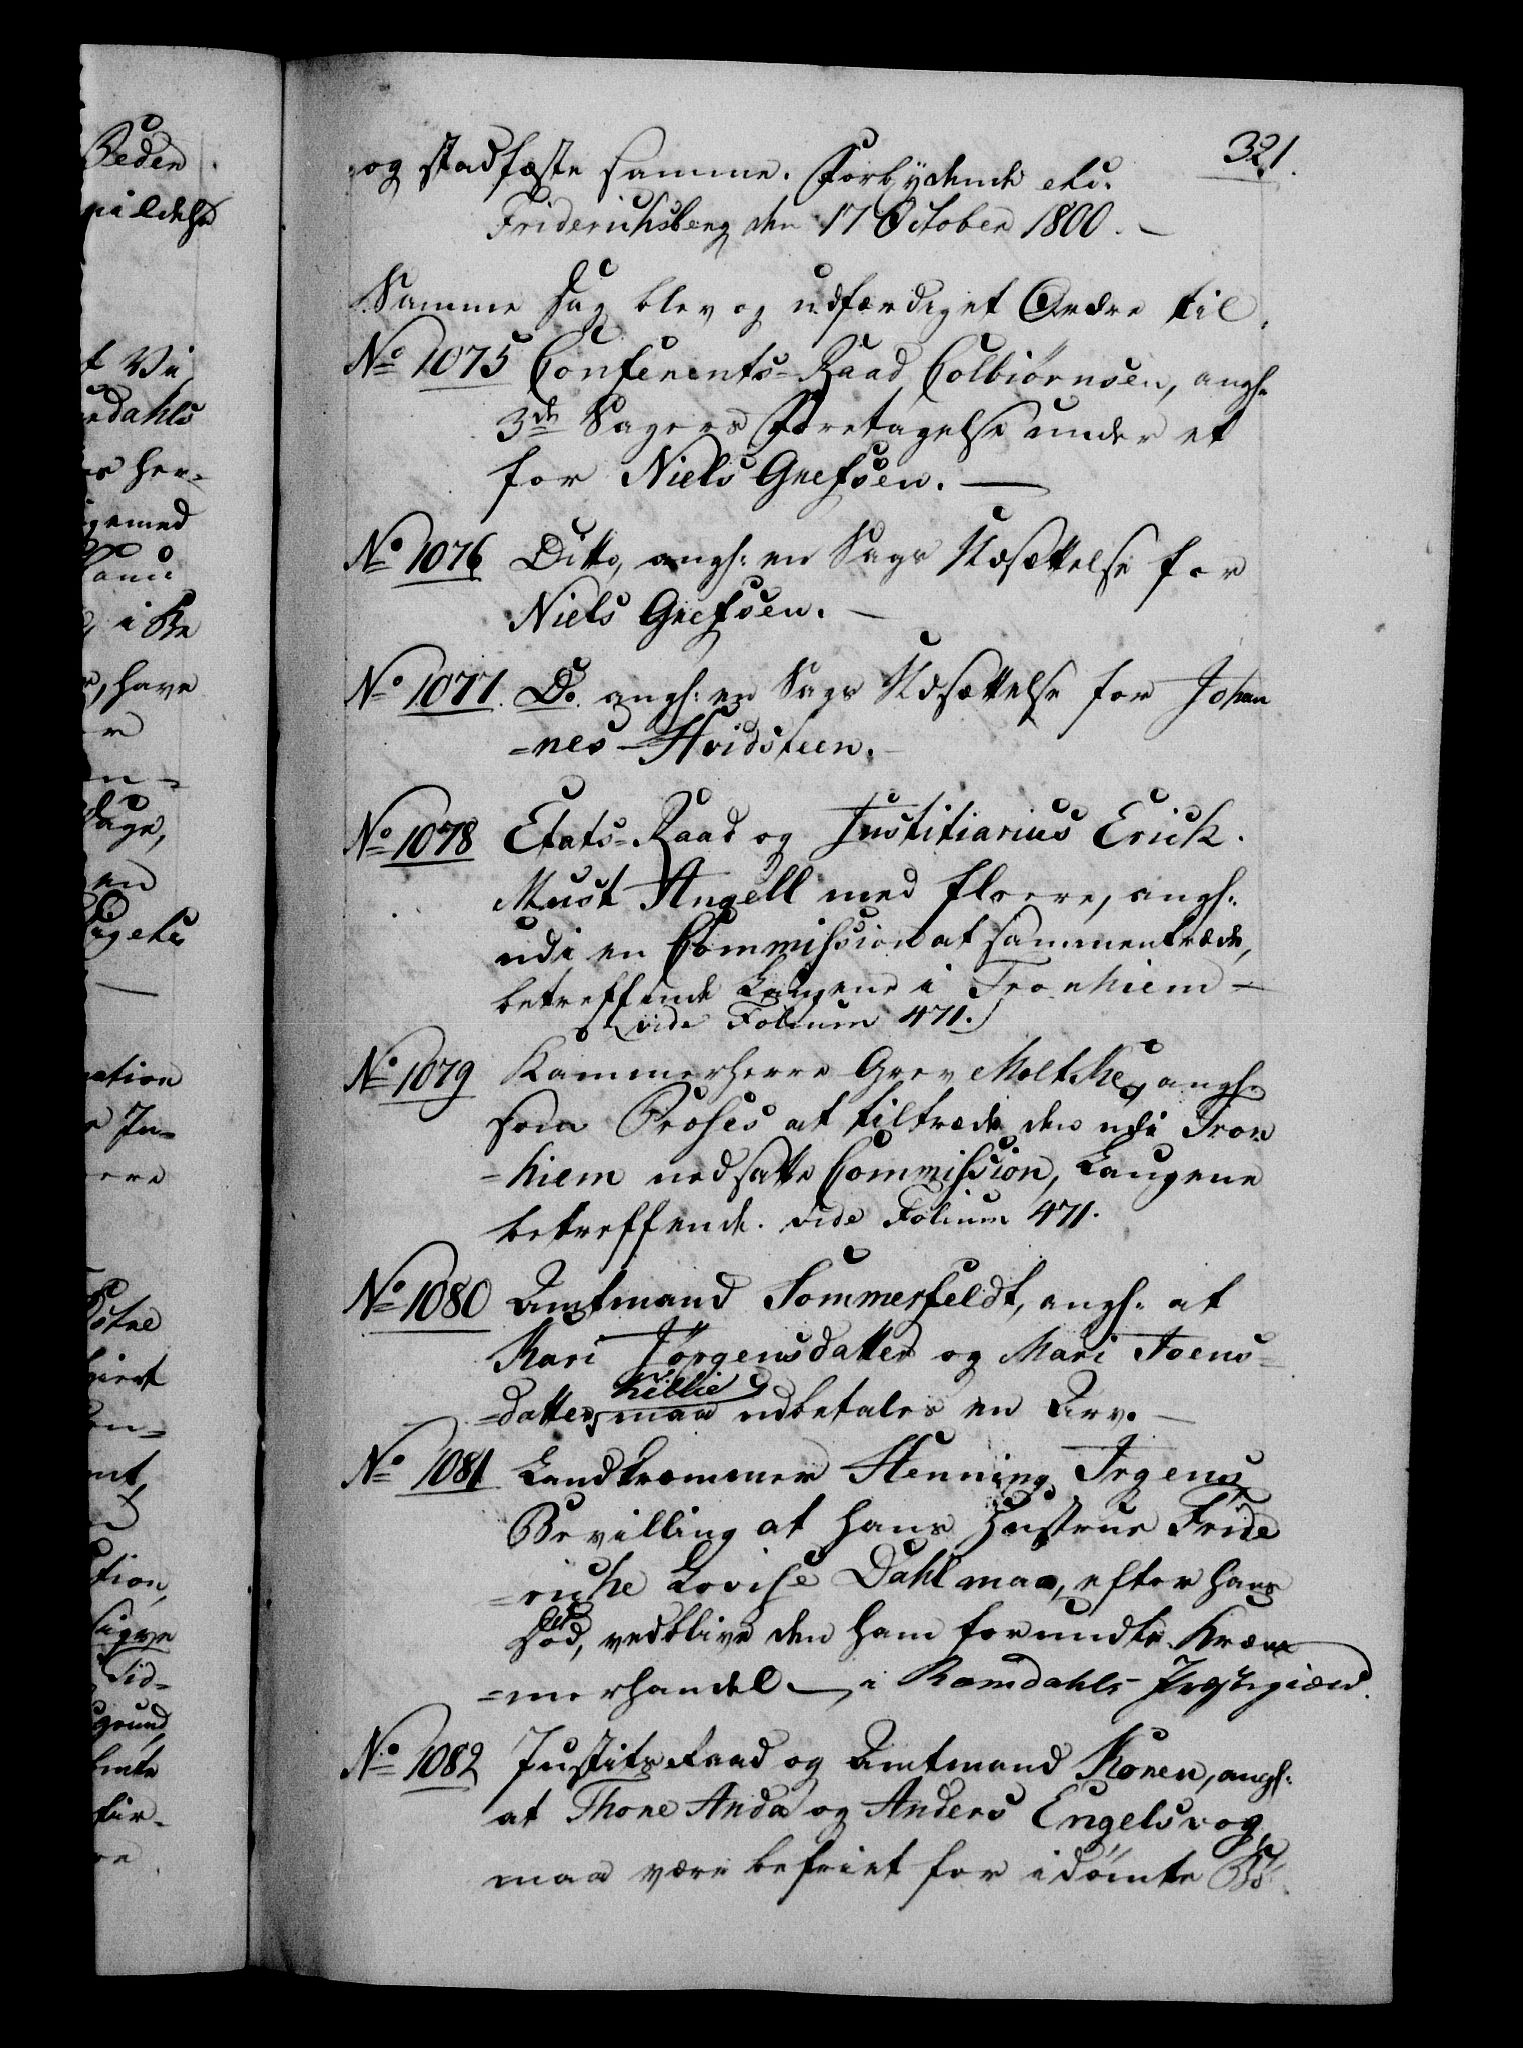 321.
og stadfæste samme. Forbydende etc.
Friderichsberg den 17 October 1800. —
Samme Dag blev og udfærdiget Ordre til
No 1075 Conferents-Raad Colbiørnsen, angl:
3de Sagers Foretagelse under et
for Niels Grefsen. —
No 1076 Ditto, angl: en Sags Udsættelse for
Niels Grefsen. —
No 1077. Do. angl: en Sags Udsættelse for Johan
=nes Hvidsteen. —
No 1078 Etats-Raad og Justitiarius Erick
Must Angell med fleere, angl:
udi en Commission at sammentræde,
betreffende Laugene i Tronhiem —
(vide Folium 471.)
No 1079 Kammerherre Grev Moltke, angl:
som Præses at tiltræde den udi Tron
=hiem nedsatte Commission, Laugene
betreffende. vide Folium 471.
No 1080 Amtmand Sommerfeldt, angl: at
Kari Jörgensdatter og Mari Joens=
Killie
=datter maa udbetales en Arv. —
No 1081 Landkræmmer Henning Irgens
Bevilling at hans Hustrue Fride
=riche Lovise Dahl maa, efter hans
Död, vedblive den ham forundte Kræm
=merhandel — i Romdahls Præstegield.
No 1082 Justitsraad og Amtmand Koren, angl:
at Thore Anda og Anders Engelsvog
maa være befriet for idömte Bö
Beder
f Vi
dahls
her=
gemed
i Be
have
en
ation
Jn=
ere
tion
Sid=
grund